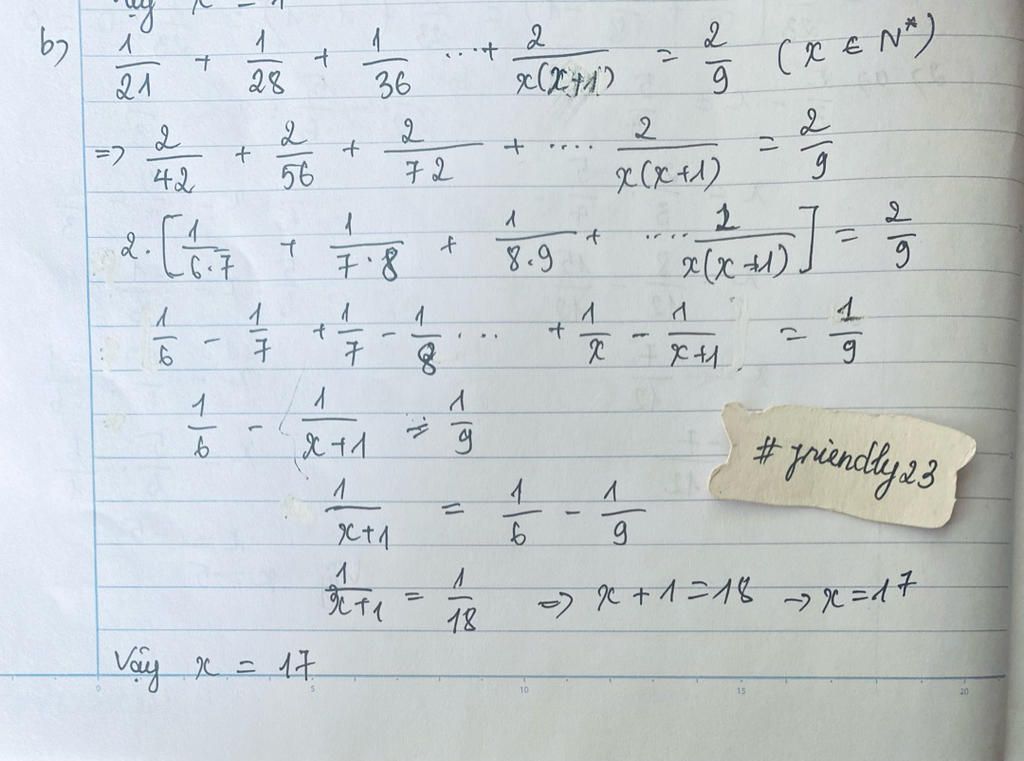 Vậy x = 1
b) 1/21 + 1/28 + 1/36 ...+ 2/x(x+1) = 2/9 (x ∈ N*)
=> 2/42 + 2/56 + 2/72 + .... 2/x(x+1) = 2/9
2.[1/6.7 + 1/7.8 + 1/8.9 + .... 1/x(x+1)] = 2/9
1/6 - 1/7 + 1/7 - 1/8 ... + 1/x - 1/x+1 = 1/9
1/6 - 1/x+1 = 1/9
# friendly23
1/x+1 = 1/6 - 1/9
1/x+1 = 1/18 => x + 1 = 18 → x = 17
Vậy x = 17
0 5 10 15 20